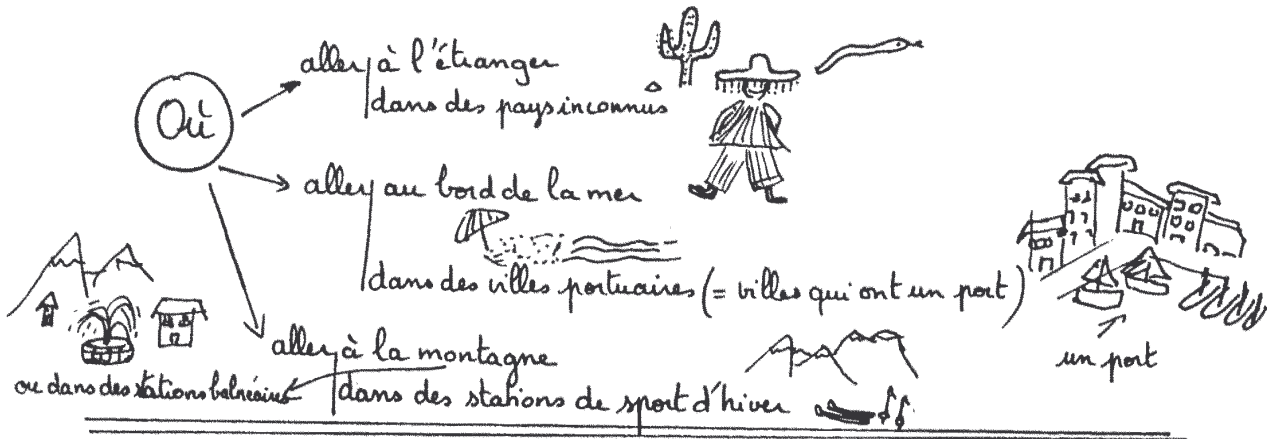 Où
aller à l'étranger
dans des pays inconnus
aller au bord de la mer
dans des villes portuaires (= villes qui ont un port)
un port
aller à la montagne
dans des stations de sport d'hiver
ou dans des stations balnéaires